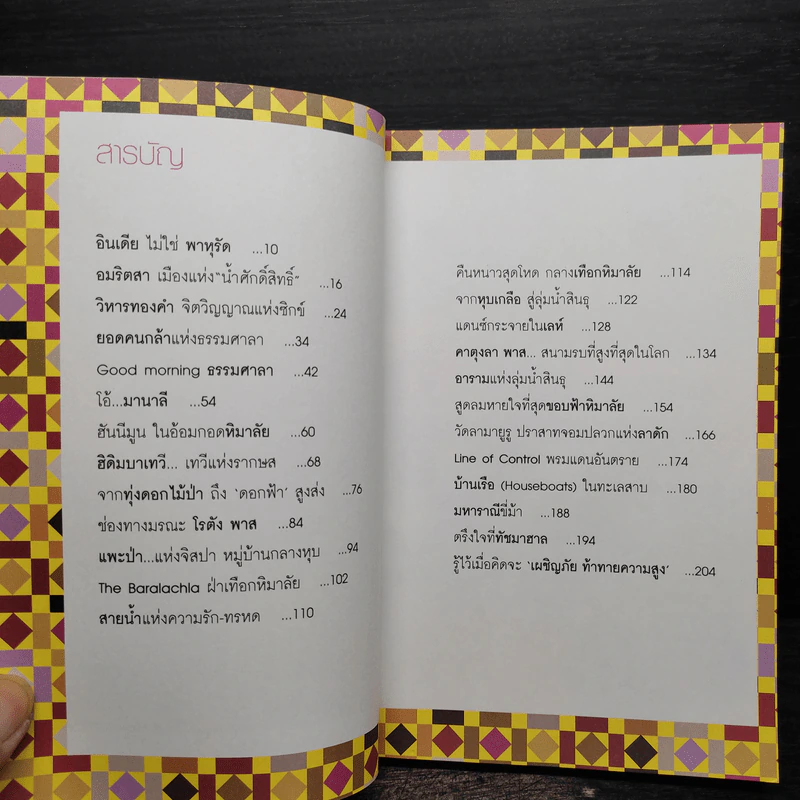 สารบัญ
อินเดีย ไม่ใช่ พาหุรัด ...10
อมริตสา เมืองแห่ง“น้ำศักดิ์สิทธิ์” ...16
วิหารทองคำ จิตวิญญาณแห่งซิกข์ ...24
ยอดคนกล้าแห่งธรรมศาลา ...34
Good morning ธรรมศาลา ...42
โอ้...มานาลี ...54
ฮันนีมูน ในอ้อมกอดหิมาลัย ...60
ฮิดิมบาเทวี... เทวีแห่งรากษส ...68
จากทุ่งดอกไม้ป่า ถึง ‘ดอกฟ้า’ สูงส่ง ...76
ช่องทางมรณะ โรตัง พาส ...84
แพะป่า...แห่งจิสปา หมู่บ้านกลางหุบ ...94
The Baralachla ฝ่าเทือกหิมาลัย ...102
สายน้ำแห่งความรัก-ทรหด ...110
คืนหนาวสุดโหด กลางเทือกหิมาลัย ...114
จากหุบเกลือ สู่ลุ่มน้ำสินธุ ...122
แดนซ์กระจายในเลห์ ...128
คาตุงลา พาส... สนามรบที่สูงที่สุดในโลก ...134
อารามแห่งลุ่มน้ำสินธุ ...144
สูดลมหายใจที่สุดขอบฟ้าหิมาลัย ...154
วัดลามายูรู ปราสาทจอมปลวกแห่งลาดัก ...166
Line of Control พรมแดนอันตราย ...174
บ้านเรือ (Houseboats) ในทะเลสาบ ...180
มหาราณีขี่ม้า ...188
ตรึงใจที่ทัชมาฮาล ...194
รู้ไว้เมื่อคิดจะ ‘เผชิญภัย ท้าทายความสูง’ ...204